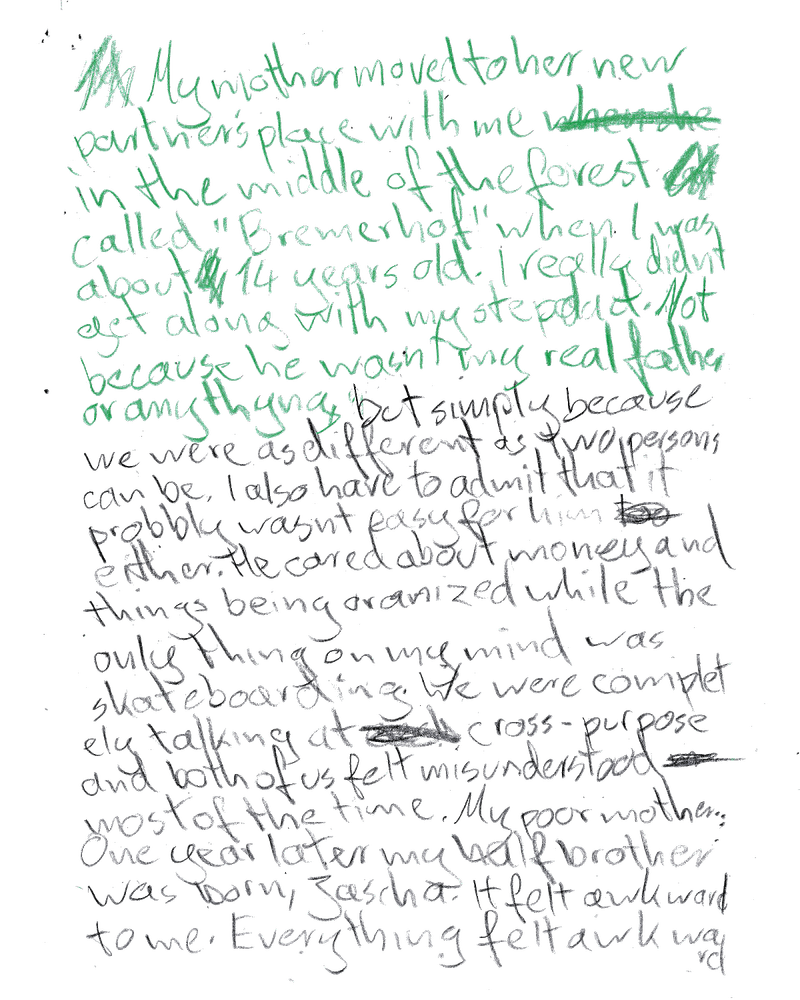 My mother moved to her new
partner's place with me when she
in the middle of the forest
called "Bremerhof" when I was
about 14 years old. I really didn't
get along with my stepdad. Not
because he wasn't my real father
or anythyng, but simply because
we were as different as two persons
can be. I also have to admit that it
probbly wasnt easy for him too
either. He cared about money and
things being oranized while the
only thing on my mind was
skateboarding. We were complet
ely talking at cross-purpose
and both of us felt misunderstood
most of the time. My poor mother..
One year later my half brother
was born, Zascha. It felt awkward
to me. Everything felt awkwa
rd